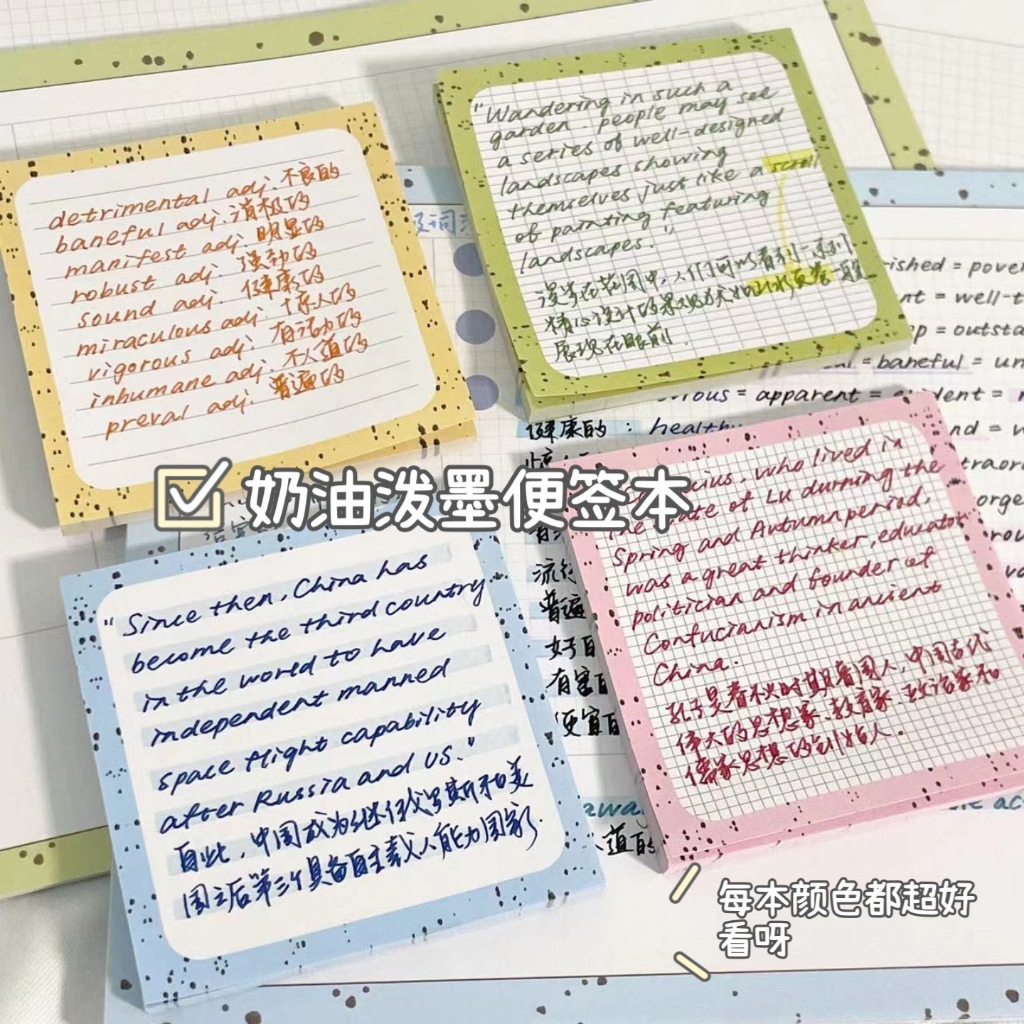 detrimental adj. 不良的
baneful adj. 消极的
manifest adj. 明显的
robust adj. 强劲的
sound adj. 健康的
miraculous adj. 惊人的
vigorous adj. 有活力的
inhumane adj. 不人道的
preval adj. 普遍的
"Wandering in such a
garden. people may see
a series of well-designed
landscapes showing
themselves just like a scroll
of painting featuring
landscapes."
漫步在花园中,人们可以看到一系列
精心设计的景观犹如山水画卷一般
展现在眼前.
ished = pover
nt = well-t
= outsta
baneful = un
ious = apparent = evident =
健康的: healthy
流行
普遍
好
有害
便宜
awa
人道的
☑奶油泼墨便签本
"Since then, China has
become the third country
in the world to have
independent manned
space flight capability
after Russia and US."
自此,中国成为继俄罗斯和美
国之后第三个具备自主载人能力国家.
Confucius, who lived in
the state of Lu durning the
Spring and Autumn period,
was a great thinker, educator
politician and founder of
Confucianism in ancient
China.
孔子是春秋时期鲁国人,中国古代
伟大的思想家、教育家、政治家和
儒家思想的创始人.
每本颜色都超好
看呀